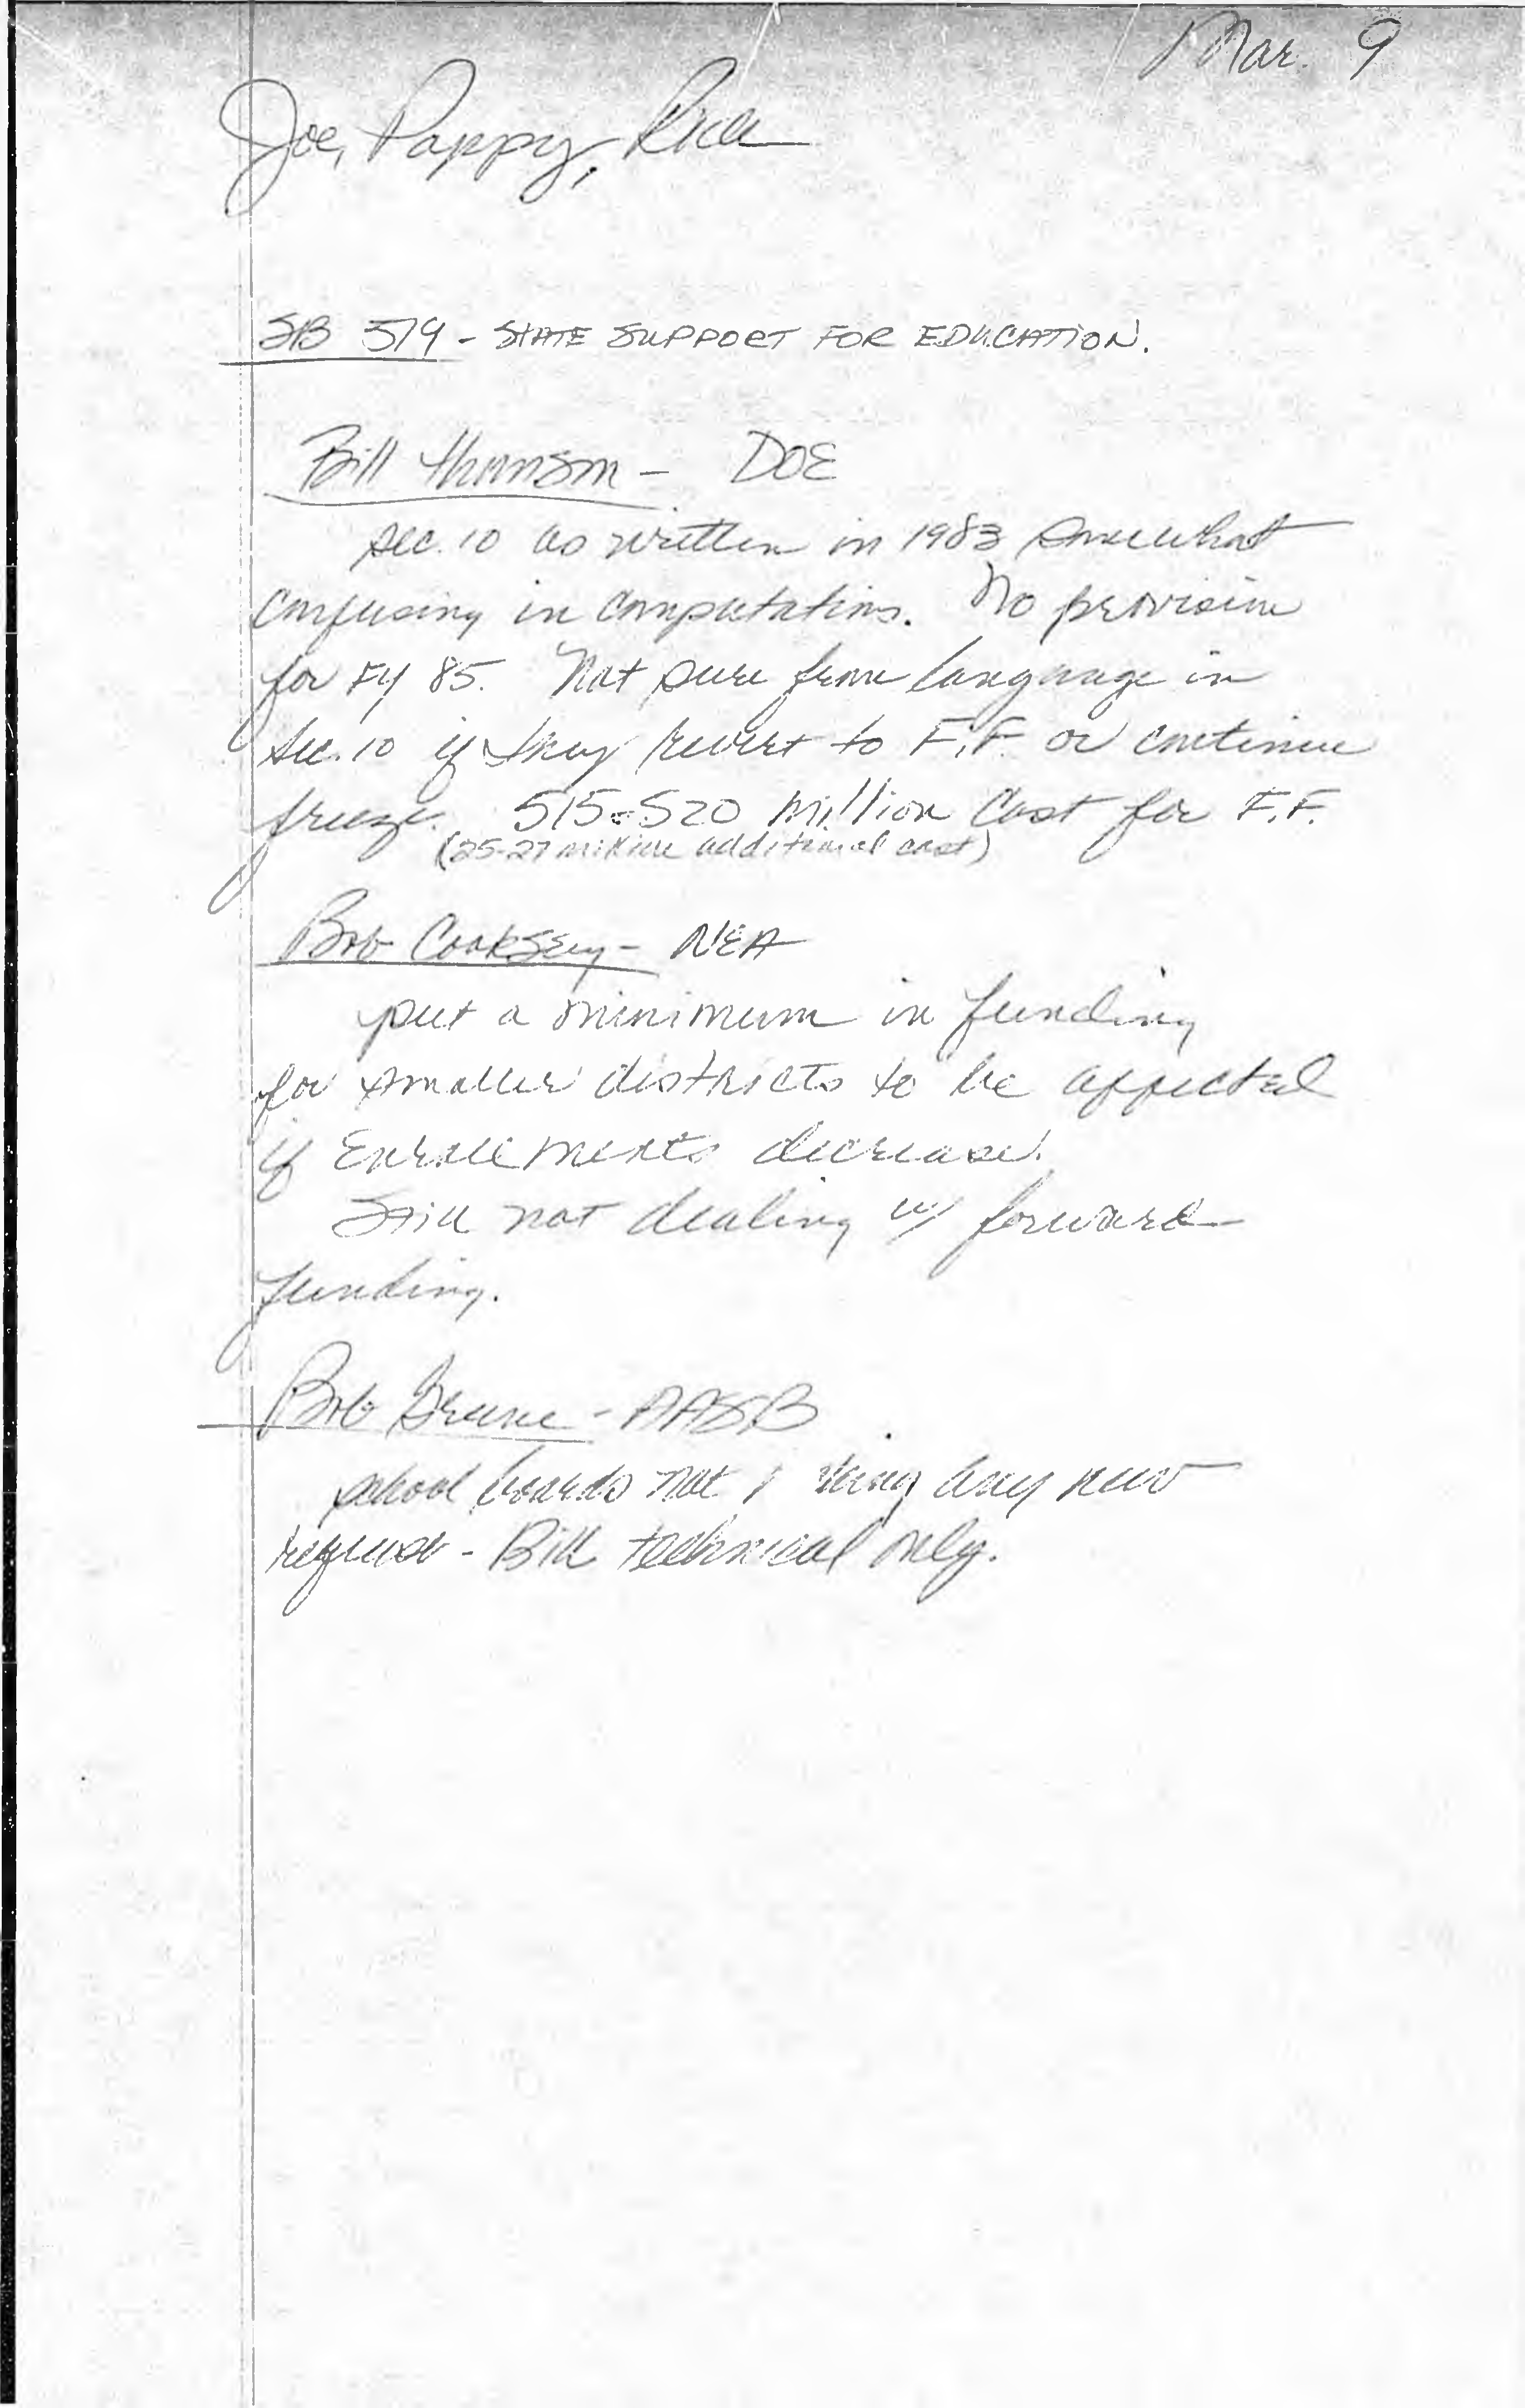 Mar. 9
Joe, Pappy, Rick
SB 519 - STATE SUPPORT FOR EDUCATION.
Bill Thomson - DOE
sec. 10 as written in 1983 somewhat
confusing in computations. No provision
for FY 85. Not sure from language in
sec. 10 if they revert to F.F. or continue
freeze. 515-520 million cost for F.F.
(25-27 million additional cost)
Bob Cooksey - NEA
put a minimum in funding
for smaller districts to be affected
if Enrollments decrease.
Still not dealing w/ forward
funding.
Bob Greene - AASB
school boards not any new
- Bill technical only.